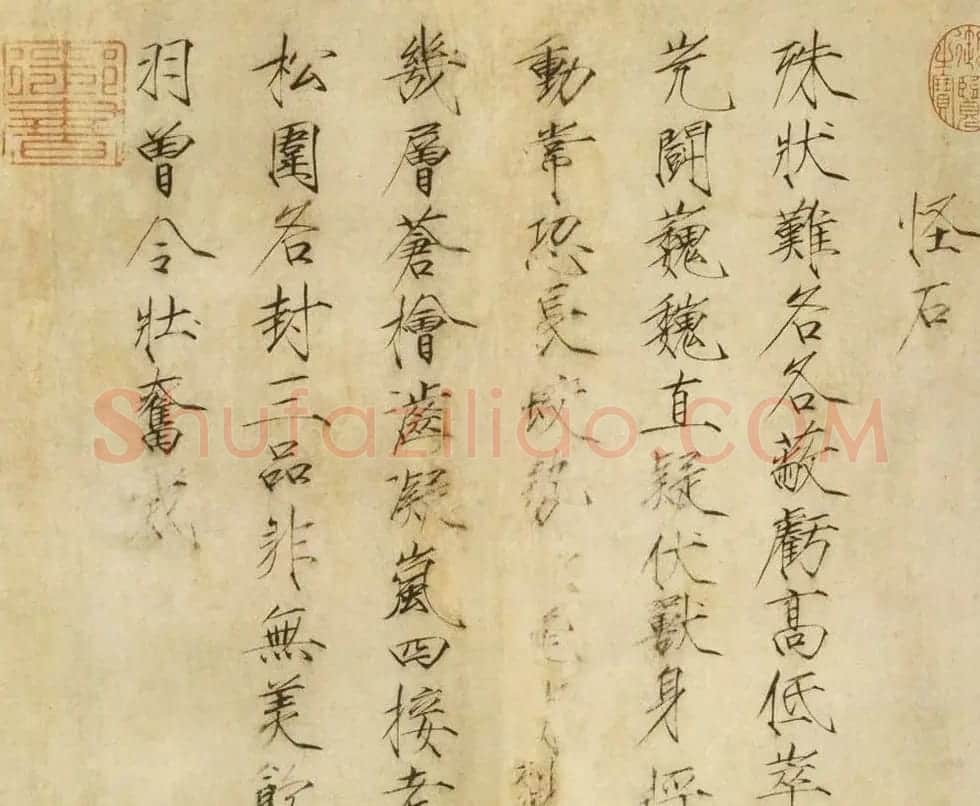 怪石
殊狀難名各蔽虧高低崒
兀鬪巍巍直疑伏獸身
動常恐長蛟勢
幾層蒼檜齒凝嵐四接老
松圍各封三品非無美
羽曾令壯奮
Shufaziliao.COM